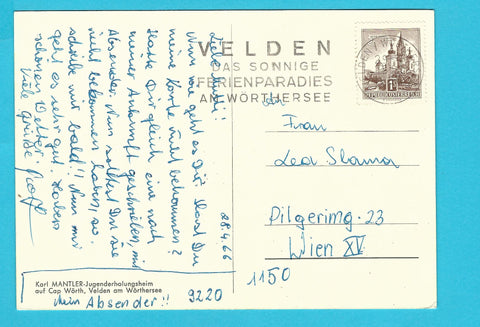 Liebe Mutti!
Nun wie geht es Dir? Hast Du
meine Karte nicht bekommen?
Hatte Dir gleich eine nach
meiner Ankunft geschrieben, mit
Absender. Nun solltest Du sie
nicht bekommen haben, so
schreibe mir bald!! Nun mir
geht es sehr gut. Haben
schönes Wetter.
Viele Grüße
28.4.66
VELDEN
DAS SONNIGE
FERIENPARADIES
AM WÖRTHERSEE
REPUBLIK ÖSTERREICH
Frau
Lea Slama
Pilgerimg. 23
Wien XV.
1150
Karl MANTLER-Jugenderholungsheim
auf Cap Wörth, Velden am Wörthersee
Mein Absender!! 9220